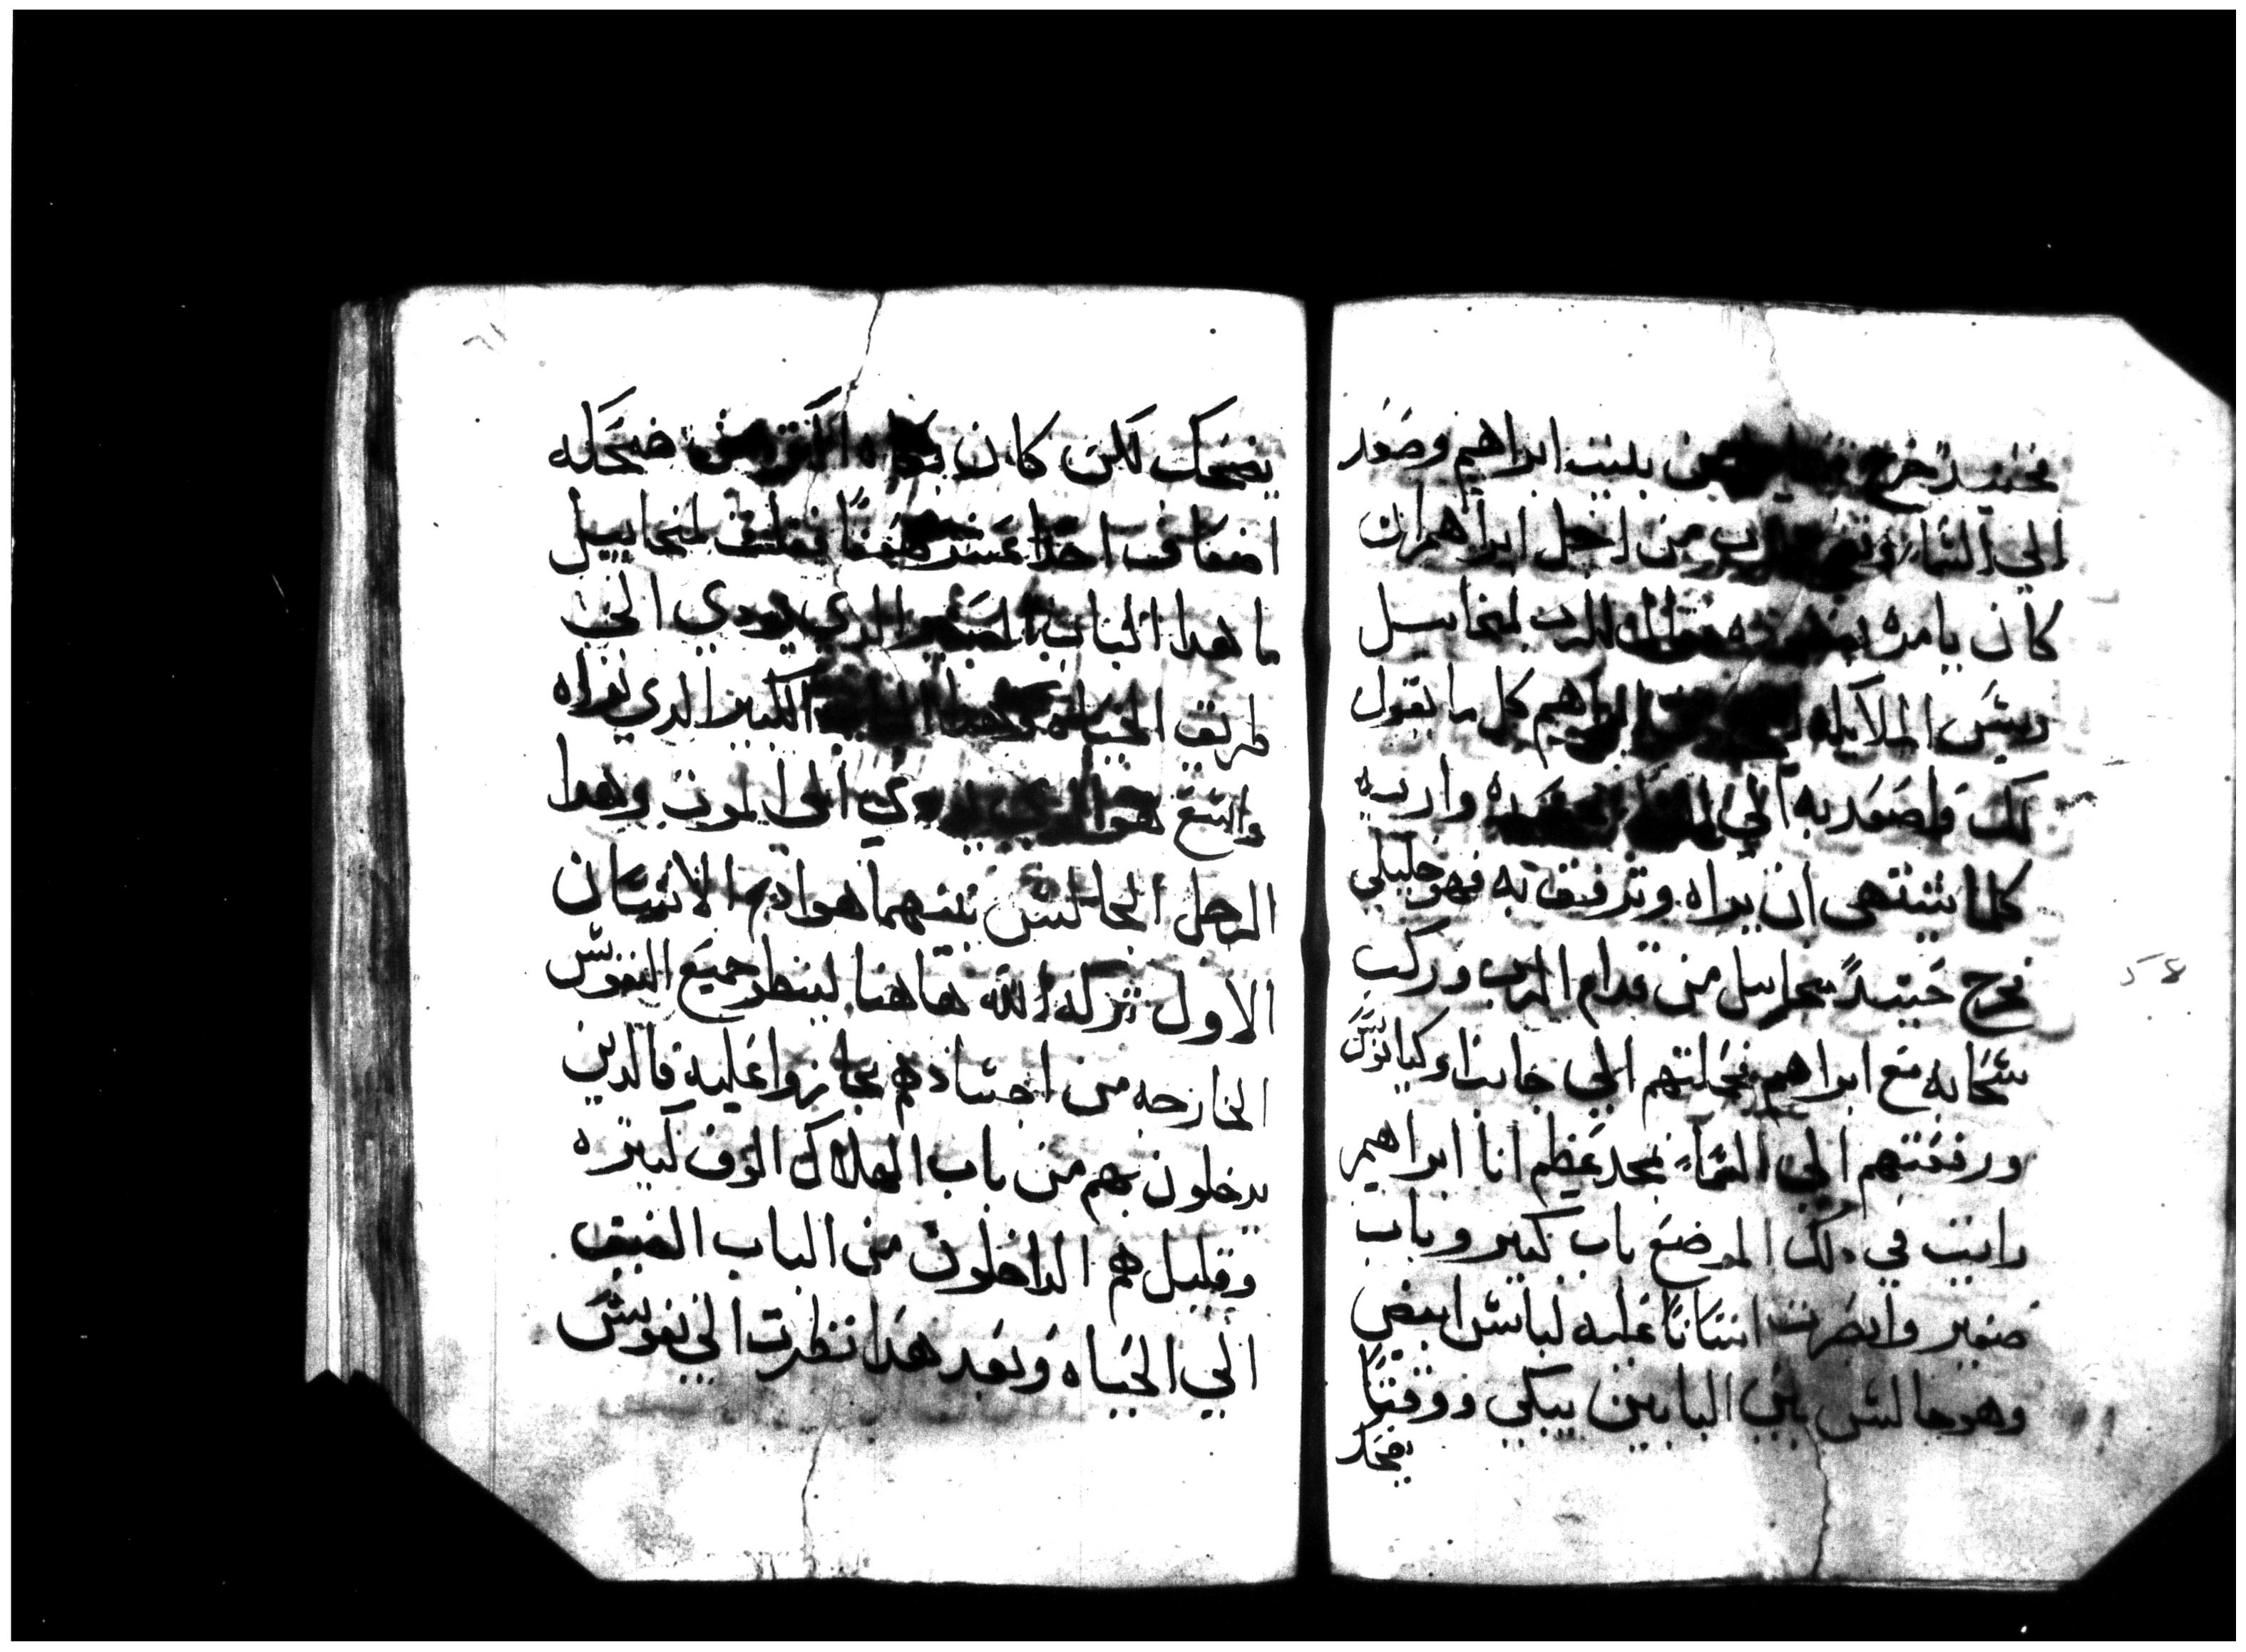 فحينيدٍ خرج من بيت ابراهيم وصعد
الي السماء من اجل ابراهيم ان
كان يامره الرب لميخاييل
رييس الملايكه ابراهيم كل ما يقول
لك واصعد به الي واريه
كلما يشتهي ان يراه وترفق به فهو خليلي
فخرج حينيدٍ ميخاييل من قدام الرب وركب
سحابه مع ابراهيم فحملتهم الي
ورفعتهم الي السماء بمجد عظيم انا ابراهيم
رايت في دلك الموضع باب كبير وباب
صغير وابصرت انسانًا عليه لباس ابيض
وهو جالس بين البابين يبكي ووقتًا
يضحك
يضحك لكن كان بكاه اكتر من ضحكه
اضعاف احدا عشر ضعفًا فقلت لميخاييل
ما هدا الباب الصغير الدي يودي الي
طريق الحياه وهدا الباب الكبير الدي نراه
واسع هو الدي يودي الي الموت وهدا
الرجل الجالس بينهما هو ادم الانسان
الاول تركه الله هاهنا لينظر جميع النفوس
الخارجه من اجسادهم يجازوا عليه فالدين
يدخلون بهم من باب الهلاك الوف كتيره
وقليل هم الداخلون من الباب الضيق
الي الحياه وبعد هدا نظرت الي نفوس